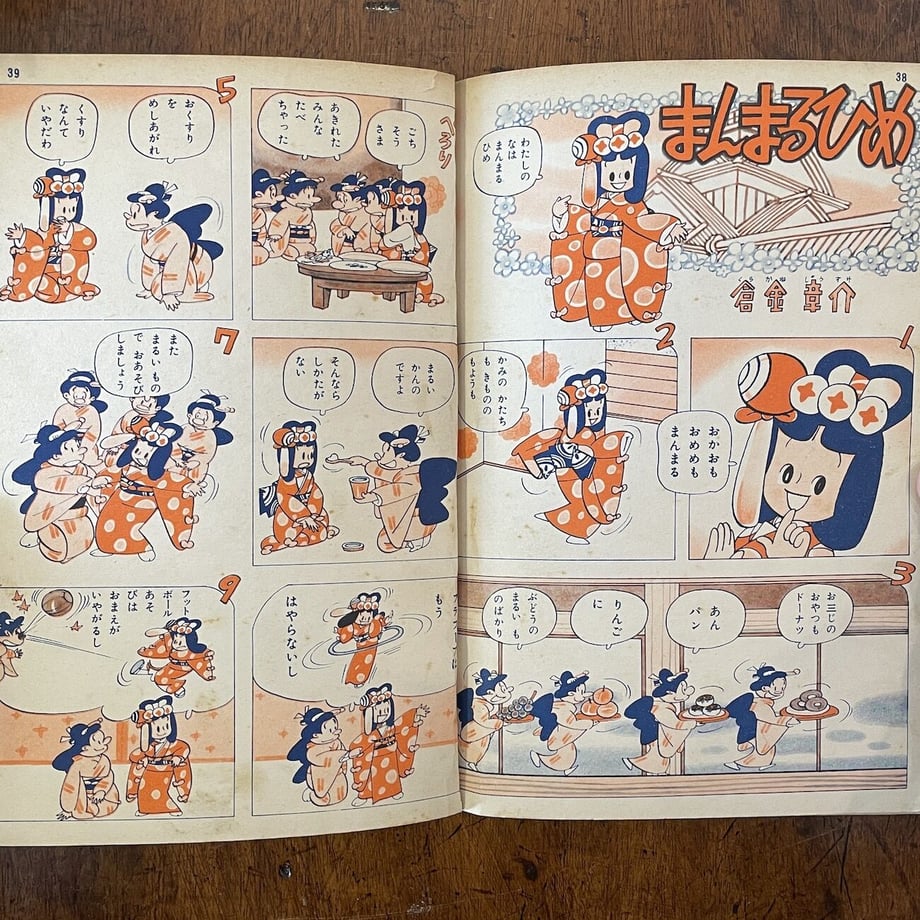 38
まんまるひめ
くらかねしょうすけ
倉金章介
わたしの
なは
まんまる
ひめ
1
おかおも
おめめも
まんまる
2
かみの かたち
も きものの
もようも
3
お三じの
おやつも
ドーナツ
あん
パン
りんご
に
ぶどうの
まるい も
のばかり
39
ぺろり
ごち
そう
さま
あきれた
みんな
たべ
ちゃった
5
おくすり
を
めしあがれ
くすり
なんて
いやだわ
まるい
かんの
ですよ
そんなら
しかたが
ない
7
また
まるい もの
で おあそび
しましょう
もう
はやらないし
9
フット
ボール
あそ
びは
おまえが
いやがるし